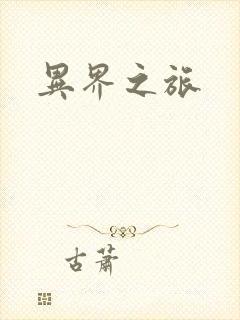 異界之旅
古蕭